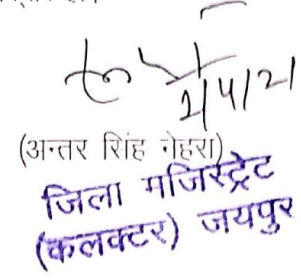 2/4/21
(अन्तर सिंह नेहरा)
जिला मजिस्ट्रेट
(कलक्टर) जयपुर